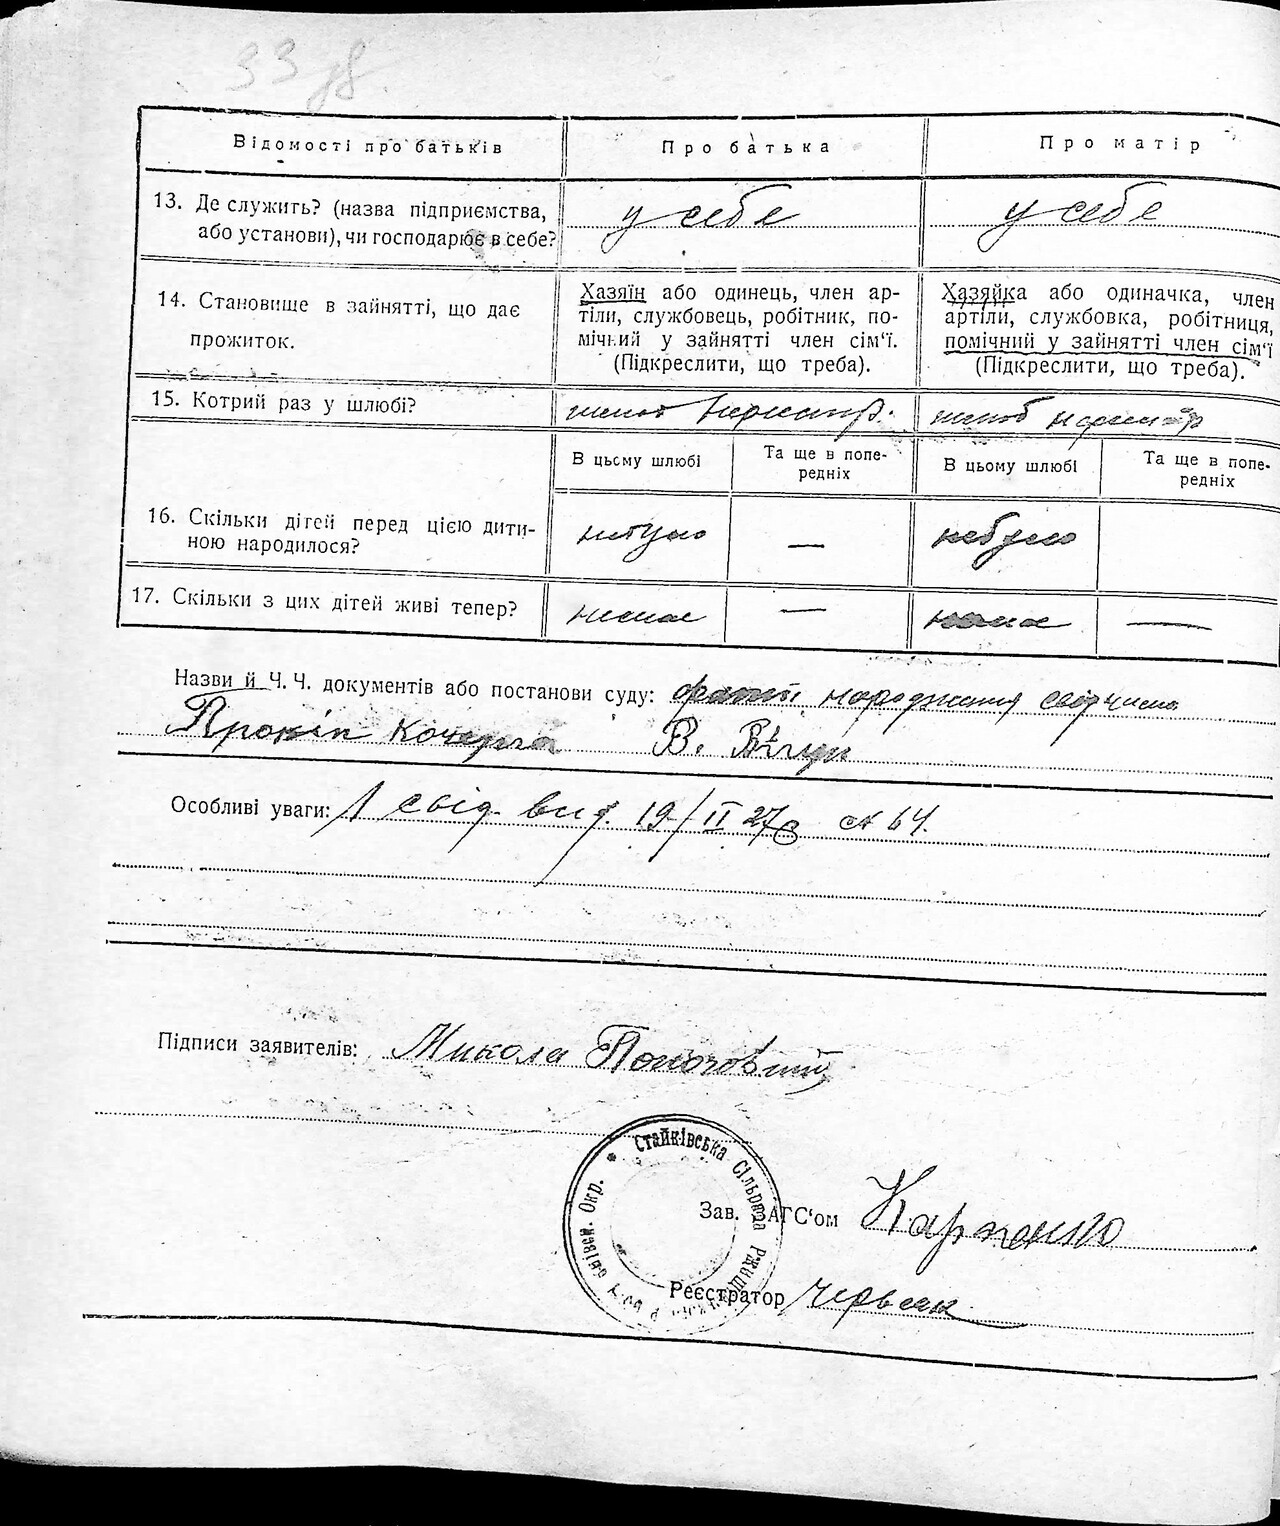 33 зв.
Відомості про батьків
Про батька
Про матір
13. Де служить? (назва підприємства, або установи), чи господарює в себе?
у себе
у себе
14. Становище в зайнятті, що дає прожиток.
Хазяїн або одинець, член ар-
тіли, службовець, робітник, по-
мічний у зайнятті член сім'ї.
(Підкреслити, що треба).
Хазяйка або одиначка, член
артіли, службовка, робітниця,
помічний у зайнятті член сім'ї
(Підкреслити, що треба).
15. Котрий раз у шлюбі?
шлюб
шлюб
В цьому шлюбі
Та ще в попе-
редніх
В цьому шлюбі
Та ще в попе-
редніх
16. Скільки дітей перед цією дити-
ною народилося?
небуло
—
небуло
17. Скільки з цих дітей живі тепер?
немає
—
немає
—
Назви й Ч. Ч. документів або постанови суду: факт народження
Прокіп Кочерга В.
Особливі уваги: 1 свід. вид. 19/II 27 р № 64.
Підписи заявителів: Микола
* Стайківська Сільрада
Окр.
Зав. ЗАГС'ом Карпенко
Реєстратор Червяк